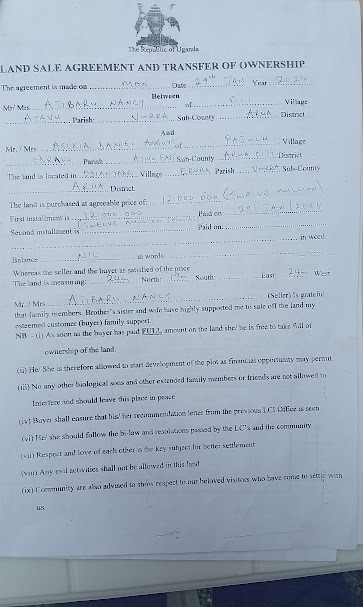 The Republic of Uganda
LAND SALE AGREEMENT AND TRANSFER OF OWNERSHIP
The agreement is made on MON Date 29th JAN Year 2024
Between
Mr/ Mrs ATIBARU NANCY of Village
Parish: NURRA Sub-County ARUA District
And
Mr. / Mrs of Village
Parish Sub-County ARUA District
The land is located in Village Parish NURRA Sub-County
ARUA District
The land is purchased at agreeable price of: 12,000,000 (TWELVE MILLION)
First installment is 12,000,000 Paid on 29/JAN/2024
TWELVE MILLION SHILLINGS
Second installment is Paid on:
in word
Balance NIL in words
Whereas the seller and the buyer as satisfied of the price
The land is measuring: 24 North: South East: 24 West
Mr. / Mrs ATIBARU NANCY (Seller) Is grateful
that family members. Brother's sister and wife have highly supported me to sale off the land my
esteemed customer (buyer) family support.
NB – (i) As soon as the buyer has paid FULL, amount on the land she/ he is free to take full of
ownership of the land.
(ii) He/ She is therefore allowed to start development of the plot as financial opportunity may permit
(iii) No any other biological sons and other extended family members or friends are not allowed to
Interfere and should leave this place in peace
(iv) Buyer shall ensure that his/ her recommendation letter from the previous LCI Office is seen
(vi) He/ she should follow the bi-law and resolutions passed by the LC's and the community
(vii) Respect and love of each other is the key subject for better settlement
(viii) Any evil activities shall not be allowed in this land
(ix) Community are also advised to show respect to our beloved visitors who have come to settle with
us.